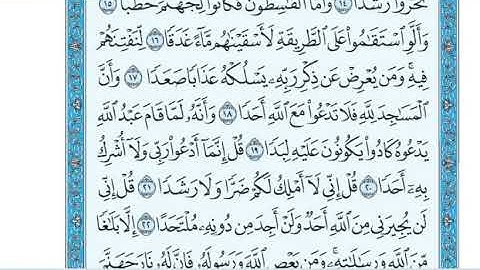 تَحَرَّوْا۟ رَشَدًا ١٤ وَأَمَّا ٱلْقَٰسِطُونَ فَكَانُوا۟ لِجَهَنَّمَ حَطَبًا ١٥
وَأَلَّوِ ٱسْتَقَٰمُوا۟ عَلَى ٱلطَّرِيقَةِ لَأَسْقَيْنَٰهُم مَّآءً غَدَقًا ١٦ لِّنَفْتِنَهُمْ
فِيهِ ۚ وَمَن يُعْرِضْ عَن ذِكْرِ رَبِّهِۦ يَسْلُكْهُ عَذَابًا صَعَدًا ١٧ وَأَنَّ
ٱلْمَسَٰجِدَ لِلَّهِ فَلَا تَدْعُوا۟ مَعَ ٱللَّهِ أَحَدًا ١٨ وَأَنَّهُۥ لَمَّا قَامَ عَبْدُ ٱللَّهِ
يَدْعُوهُ كَادُوا۟ يَكُونُونَ عَلَيْهِ لِبَدًا ١٩ قُلْ إِنَّمَآ أَدْعُوا۟ رَبِّى وَلَآ أُشْرِكُ
بِهِۦٓ أَحَدًا ٢٠ قُلْ إِنِّى لَآ أَمْلِكُ لَكُمْ ضَرًّا وَلَا رَشَدًا ٢١ قُلْ إِنِّى
لَن يُجِيرَنِى مِنَ ٱللَّهِ أَحَدٌ وَلَنْ أَجِدَ مِن دُونِهِۦ مُلْتَحَدًا ٢٢ إِلَّا بَلَٰغًا
مِّنَ ٱللَّهِ وَرِسَٰلَٰتِهِۦ ۚ وَمَن يَعْصِ ٱللَّهَ وَرَسُولَهُۥ فَإِنَّ لَهُۥ نَارَ جَهَنَّمَ